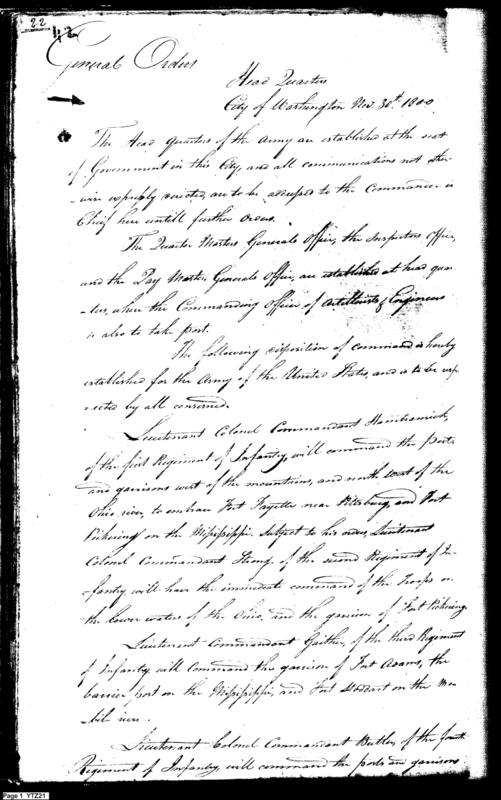 22
42
General Orders
Head Quarters
City of Washington Nov. 30th. 1800
The Head Quarters of the Army are established at the seat
of Government in this City, and all communications not other-
-wise expressly directed, are to be addressed to the Commander in
Chief here untill further orders.
The Quarter Masters Generals Office, the Inspectors Office,
and the Pay Masters Generals Office, are established at head quar-
-ters, where the Commanding Officer of Artillerists & Engineers
is also to take post.
The following disposition of command is hereby
established for the Army of the United States, and is to be resp-
-ected by all concerned.
Lieutenant Colonel Commandant Hamtramck,
of the first Regiment of Infantry, will command the posts
and garrisons west of the mountains, and north west of the
Ohio river, to embrace Fort Fayette near Pittsburg, and Fort
Pickering on the Mississippi. Subject to his orders, Lieutenant
Colonel Commandant Strong of the second Regiment of In-
-fantry will have the immediate command of the Troops on
the lower waters of the Ohio, and the garrison of Fort Pickering.
Lieutenant Commandant Gaither, of the third Regiment
of Infantry, will command the garrison of Fort Adams, the
barrier post on the Mississippi, and Fort Stoddart on the Mo-
-bile river.
Lieutenant Colonel Commandant Butler, of the fourth
Regiment of Infantry, will command the posts and garrisons
Page 1 YTZ21